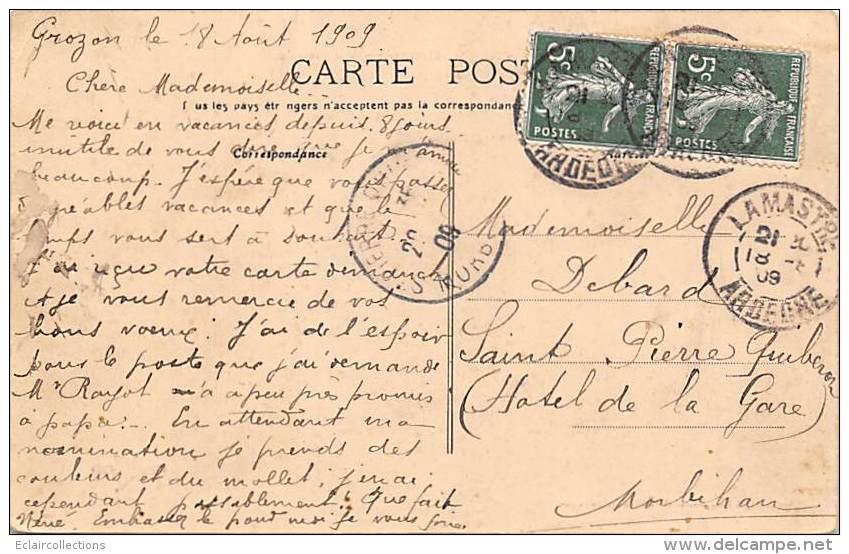 Grozon le 18 Août 1909
Chère Mademoiselle
CARTE POST
us les pays étr ngers n'acceptent pas la correspondance
Me voici en vacances depuis 8 jours
inutile de vous dire que je m'amuse
Correspondance
beaucoup. J'espère que vous passez
d'agréables vacances et que le
temps vous sert à souhait
J'ai reçu votre carte dimanche
et je vous remercie de vos
bons voeux. J'ai de l'espoir
pour le poste que j'ai demandé
Mr Rayot l'a à peu près promis
à papa. En attendant ma
nomination je prends des
couleurs et du mollet; j'en ai
cependant passablement. Que fait
René. Embrassez le pour moi je vous
Mademoiselle
Debard
Saint Pierre Quiberon
(Hôtel de la Gare)
Morbihan
5c
REPUBLIQUE FRANÇAISE
POSTES
5c
REPUBLIQUE FRANÇAISE
POSTES
ARDECHE
LAMASTRE
21
18 -8
09
ARDECHE
20
09
Eclaircollections
www.delcampe.net